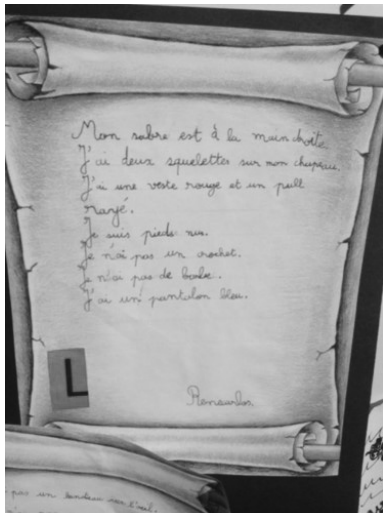 Mon sabre est à la main droite.
J'ai deux squelettes sur mon chapeau.
J'ai une veste rouge et un pull
rayé.
Je suis pieds nus.
Je n'ai pas un crochet.
Je n'ai pas de barbe.
J'ai un pantalon bleu.
L
pas un bandeau sur l'œil.